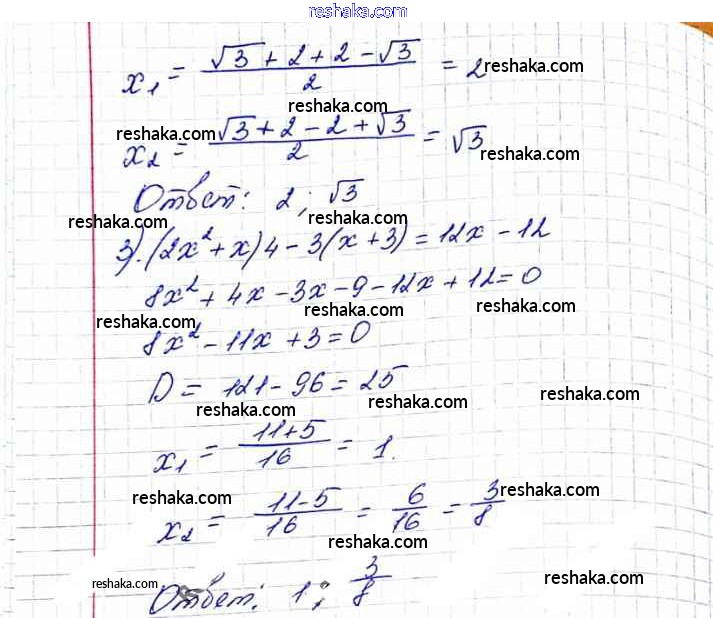 reshaka.com
x₁ = (√3 + 2 + 2 − √3)/2 = 2 reshaka.com
reshaka.com
reshaka.com
x₂ = (√3 + 2 − 2 + √3)/2 = √3
reshaka.com
Ответ: 2; √3
reshaka.com reshaka.com
3).(2x² + x)4 − 3(x + 3) = 12x − 12
reshaka.com
8x² + 4x − 3x − 9 − 12x + 12 = 0
reshaka.com reshaka.com
8x² − 11x + 3 = 0
D = 121 − 96 = 25
reshaka.com reshaka.com
x₁ = (11+5)/16 = 1.
reshaka.com reshaka.com
x₂ = (11−5)/16 = 6/16 = 3/8
reshaka.com
reshaka.com reshaka.com
Ответ: 1; 3/8